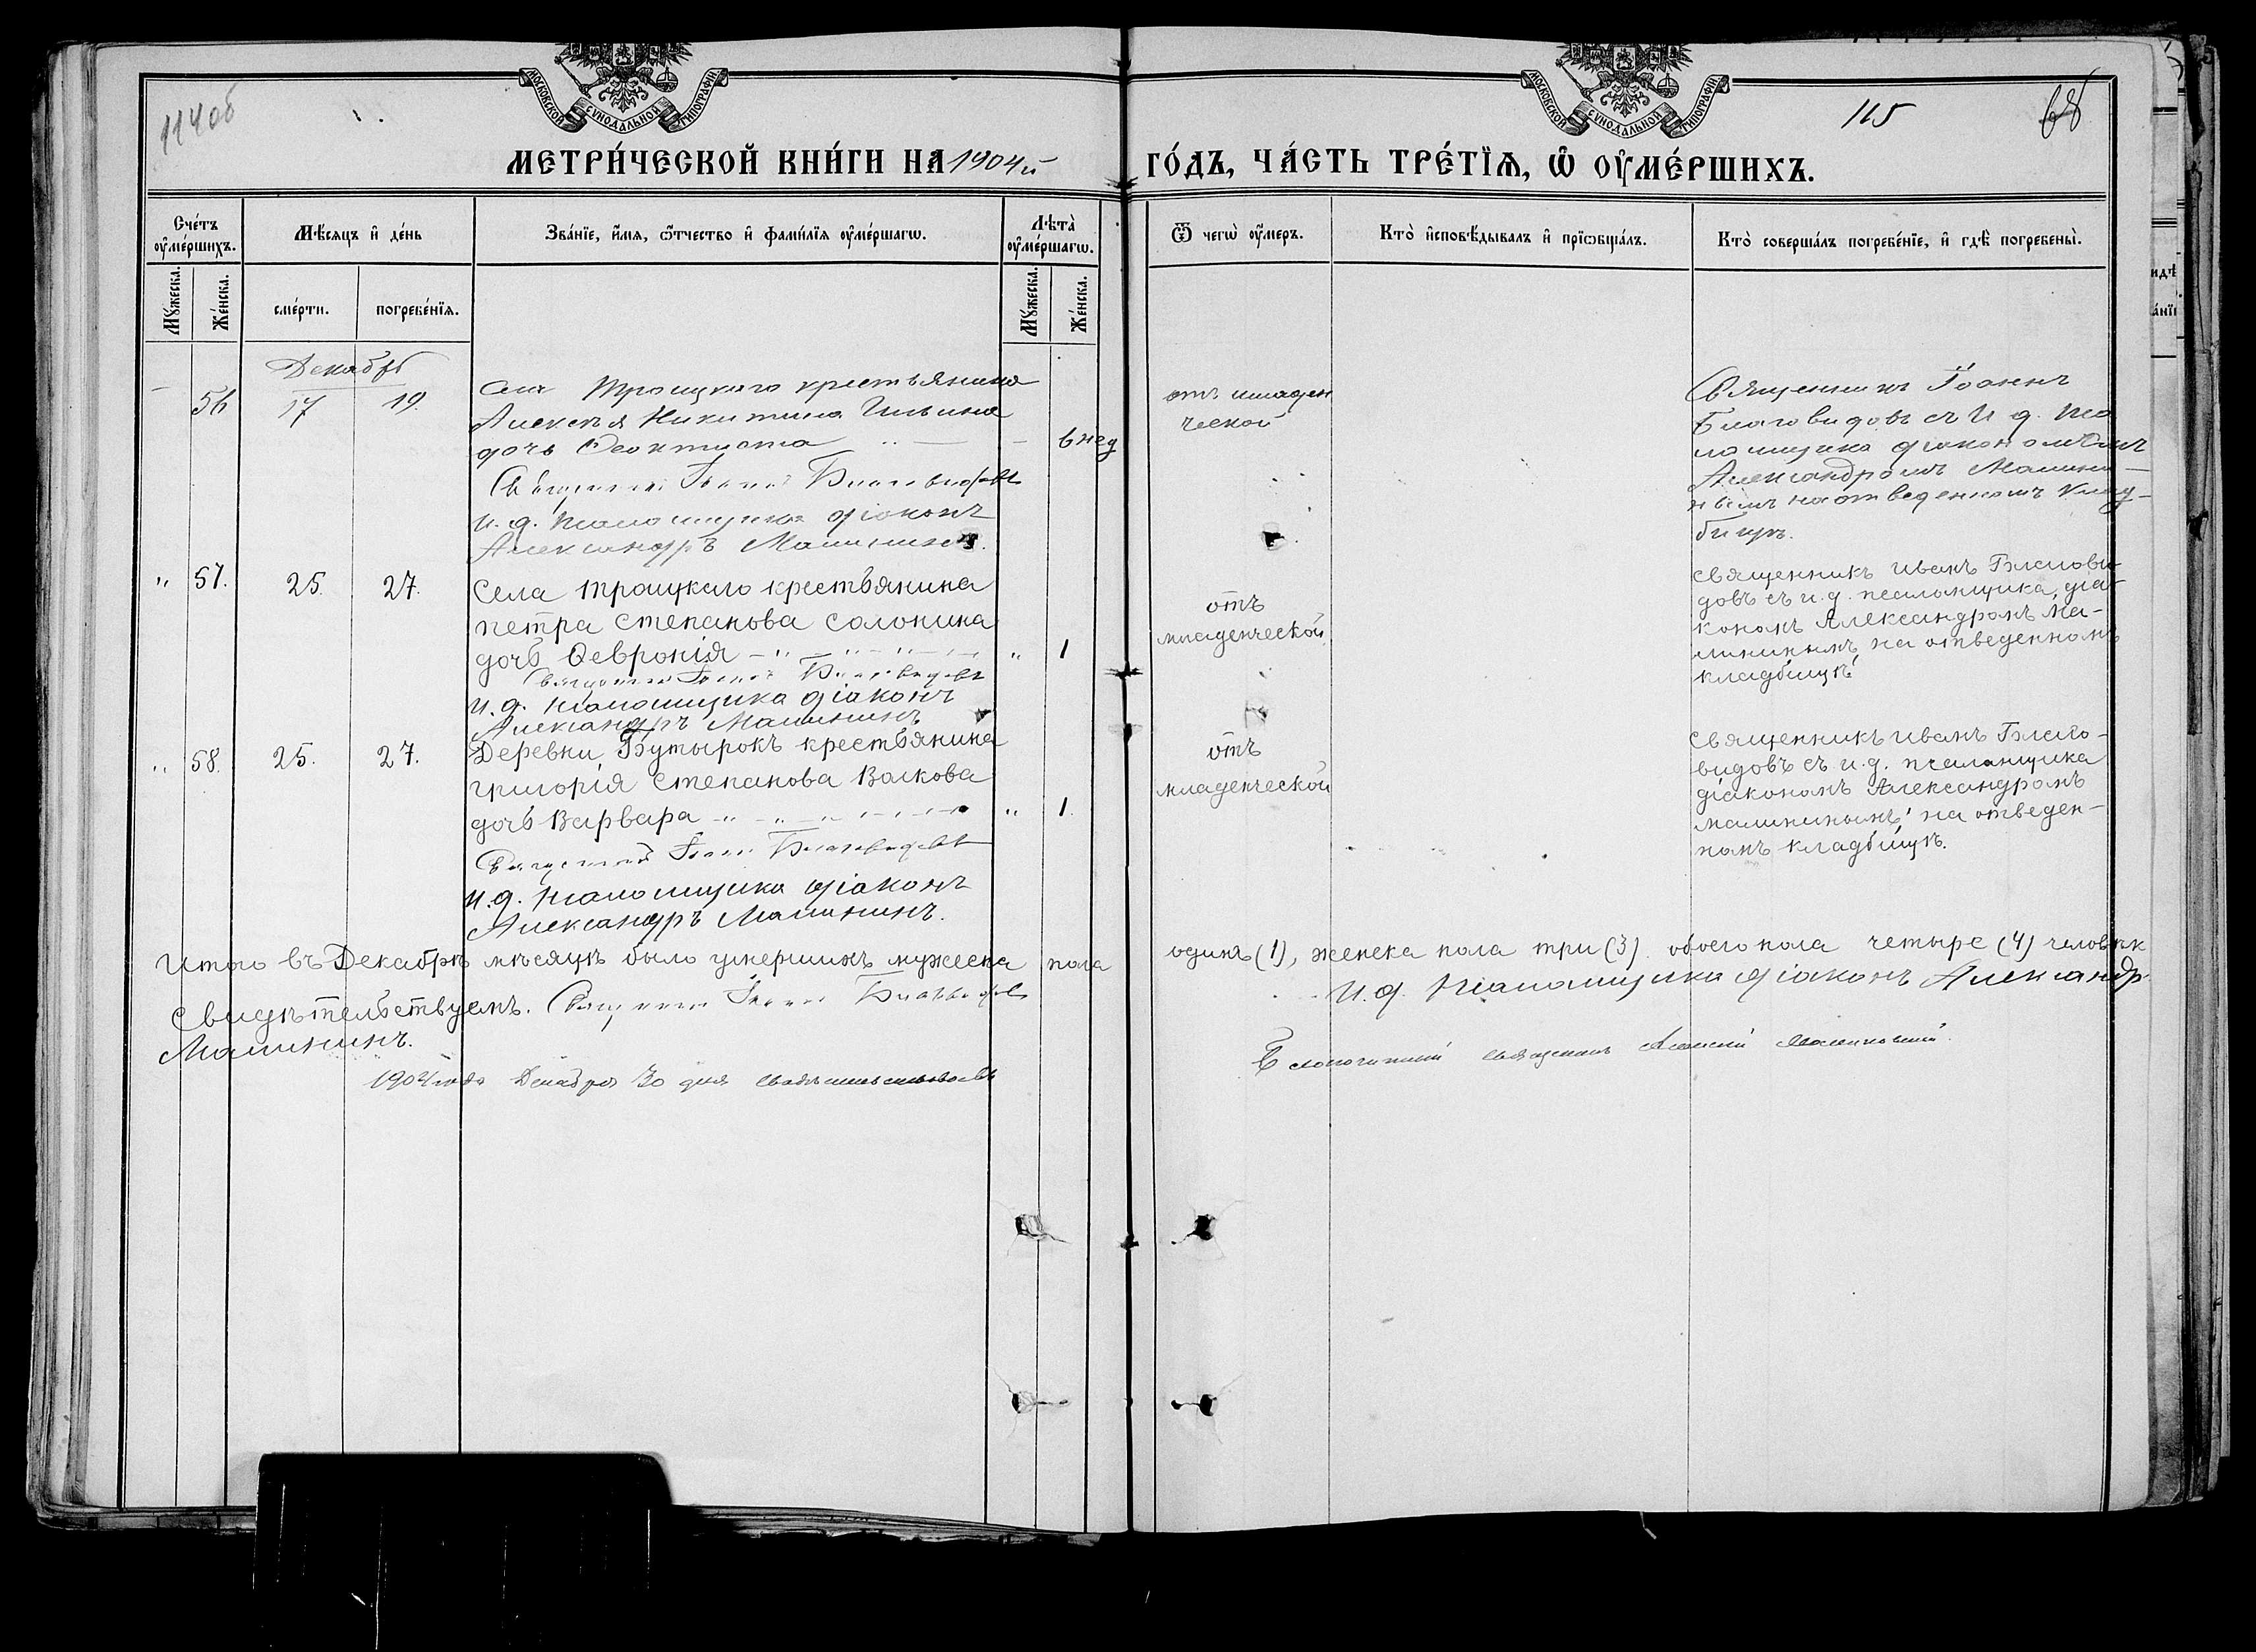 114об
115
68
МОСКОВСКОЙ СѴНОДАЛЬНОЙ ТИПОГРАФІИ
МОСКОВСКОЙ СѴНОДАЛЬНОЙ ТИПОГРАФІИ
МЕТРИ́ЧЕСКОЙ КНИ́ГИ НА 1904й ГО́ДЪ, ЧА́СТЬ ТРЕ́ТЇѦ, Ѡ ОУ҆МЕ́РШИХЪ.
Сче́тъ оу҆ме́ршихъ.
Мѣ́сяцъ и҆ де́нь
Зва́нїе, и҆́мя, ѻ҆́тчество и҆ фами́лїя оу҆ме́ршагѡ.
Лѣта̀ оу҆ме́ршагѡ.
Ѿ чегѡ̀ оу҆́меръ.
Кто̀ и҆сповѣ́дывалъ и҆ прїѡбща́лъ.
Кто̀ соверша́лъ погребе́нїе, и҆ гдѣ̀ погребены̀.
Мꙋ́жеска.
Же́нска.
сме́рти.
погребе́нїя.
Мꙋ́жеска.
Же́нска.
Декабрь
56 17 19.
Села Троицкаго крестьянина
Алексѣя Никитина Ильина
дочь Феоктиста 6 нед
Священникъ Іоаннъ Благовидовъ
и. д. псаломщика діаконъ
Александръ Малининъ.
отъ младен
ческой
Священникъ Іоаннъ
Благовидовъ съ и. д. пса
ломщика діакономъ
Александромъ Малини-
нымъ на отведенномъ клад-
бищѣ.
" 57. 25. 27.
Села Троицкаго крестьянина
Петра Степанова Солонина
дочь Ѳевронія " 1
Священникъ Іоаннъ Благовидовъ
и. д. псаломщика діаконъ
Александръ Малининъ
отъ
младенческой
Священникъ Иванъ Благови-
довъ съ и. д. псаломщика, діа-
кономъ Александромъ Ма-
лининымъ на отведенномъ
кладбищѣ
" 58. 25. 27.
Деревни Бутырокъ крестьянина
Григорія Степанова Волкова
дочь Варвара " 1.
Священникъ Іоаннъ Благовидовъ
и. д. псаломщика діаконъ
Александръ Малининъ.
отъ
младенческой
Священникъ Иванъ Благо-
видовъ съ и. д. псаломщика
діакономъ Александромъ
Малининымъ на отведен-
номъ кладбищѣ.
Итого въ Декабрѣ мѣсяцѣ было умершихъ мужеска пола одинъ (1), женска пола три (3) обоего пола четыре (4) человѣк
Свидѣтельствуемъ. Священникъ Іоаннъ Благовидовъ И. д. псаломщика діаконъ Александръ
Малининъ.
1904 года Декабря 30 дня свидѣтельствовалъ Благочинный священникъ Алексій